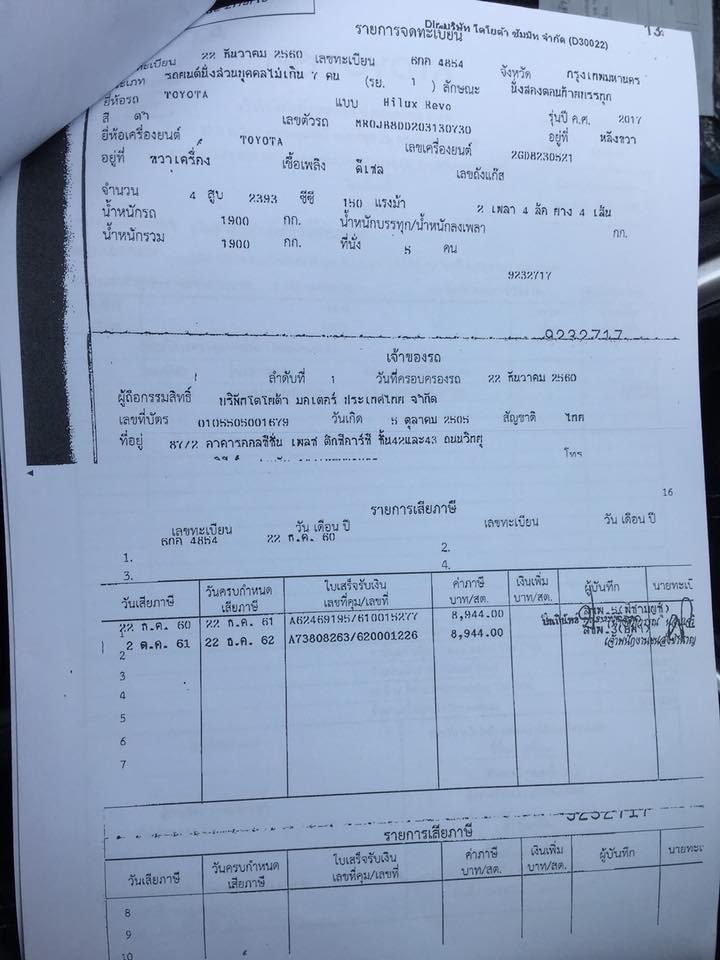 บริษัท โตโยต้า ซัมมิท จำกัด (D30022)
13
รายการจดทะเบียน
22 ธันวาคม 2560 เลขทะเบียน 6กค 4854 จังหวัด กรุงเทพมหานคร
รถยนต์นั่งส่วนบุคคลไม่เกิน 7 คน (รย. 1 ) ลักษณะ นั่งสองตอนท้ายบรรทุก
ยี่ห้อรถ TOYOTA แบบ Hilux Revo รุ่นปี ค.ศ. 2017
สี ดำ เลขตัวรถ อยู่ที่ หลังขวา
ยี่ห้อเครื่องยนต์ TOYOTA เลขเครื่องยนต์ 2GD8230521
อยู่ที่ ขวาเครื่อง เชื้อเพลิง ดีเซล เลขถังแก๊ส
จำนวน 4 สูบ 2393 ซีซี 150 แรงม้า 2 เพลา 4 ล้อ ยาง 4 เส้น
น้ำหนักรถ 1900 กก. น้ำหนักบรรทุก/น้ำหนักลงเพลา กก.
น้ำหนักรวม 1900 กก. ที่นั่ง 5 คน
9232717
9232717
เจ้าของรถ
ลำดับที่ 1 วันที่ครอบครองรถ 22 ธันวาคม 2560
ผู้ถือกรรมสิทธิ์ บริษัทโตโยต้า มอเตอร์ ประเทศไทย จำกัด
เลขที่บัตร 0105505001679 วันเกิด 5 ตุลาคม 2505 สัญชาติ ไทย
ที่อยู่ 87/2 อาคารออลซีซั่น เพลส ชั้น42และ43 ถนนวิทยุ
โทร
16
รายการเสียภาษี
เลขทะเบียน วัน เดือน ปี เลขทะเบียน วัน เดือน ปี
1. 6กค 4854 22 ธ.ค. 60 2.
3. 4.
วันเสียภาษี วันครบกำหนดเสียภาษี ใบเสร็จรับเงิน เลขที่คุม/เลขที่ ค่าภาษี บาท/สต. เงินเพิ่ม บาท/สต. ผู้บันทึก นายทะเบี
22 ธ.ค. 60 22 ธ.ค. 61 A62469195/610015277 8,944.00
1
2 ต.ค. 61 22 ธ.ค. 62 A73808263/620001226 8,944.00
2
3
4
5
6
7
9232717
รายการเสียภาษี
วันเสียภาษี วันครบกำหนดเสียภาษี ใบเสร็จรับเงิน เลขที่คุม/เลขที่ ค่าภาษี บาท/สต. เงินเพิ่ม บาท/สต. ผู้บันทึก นายทะเบ
8
9
10